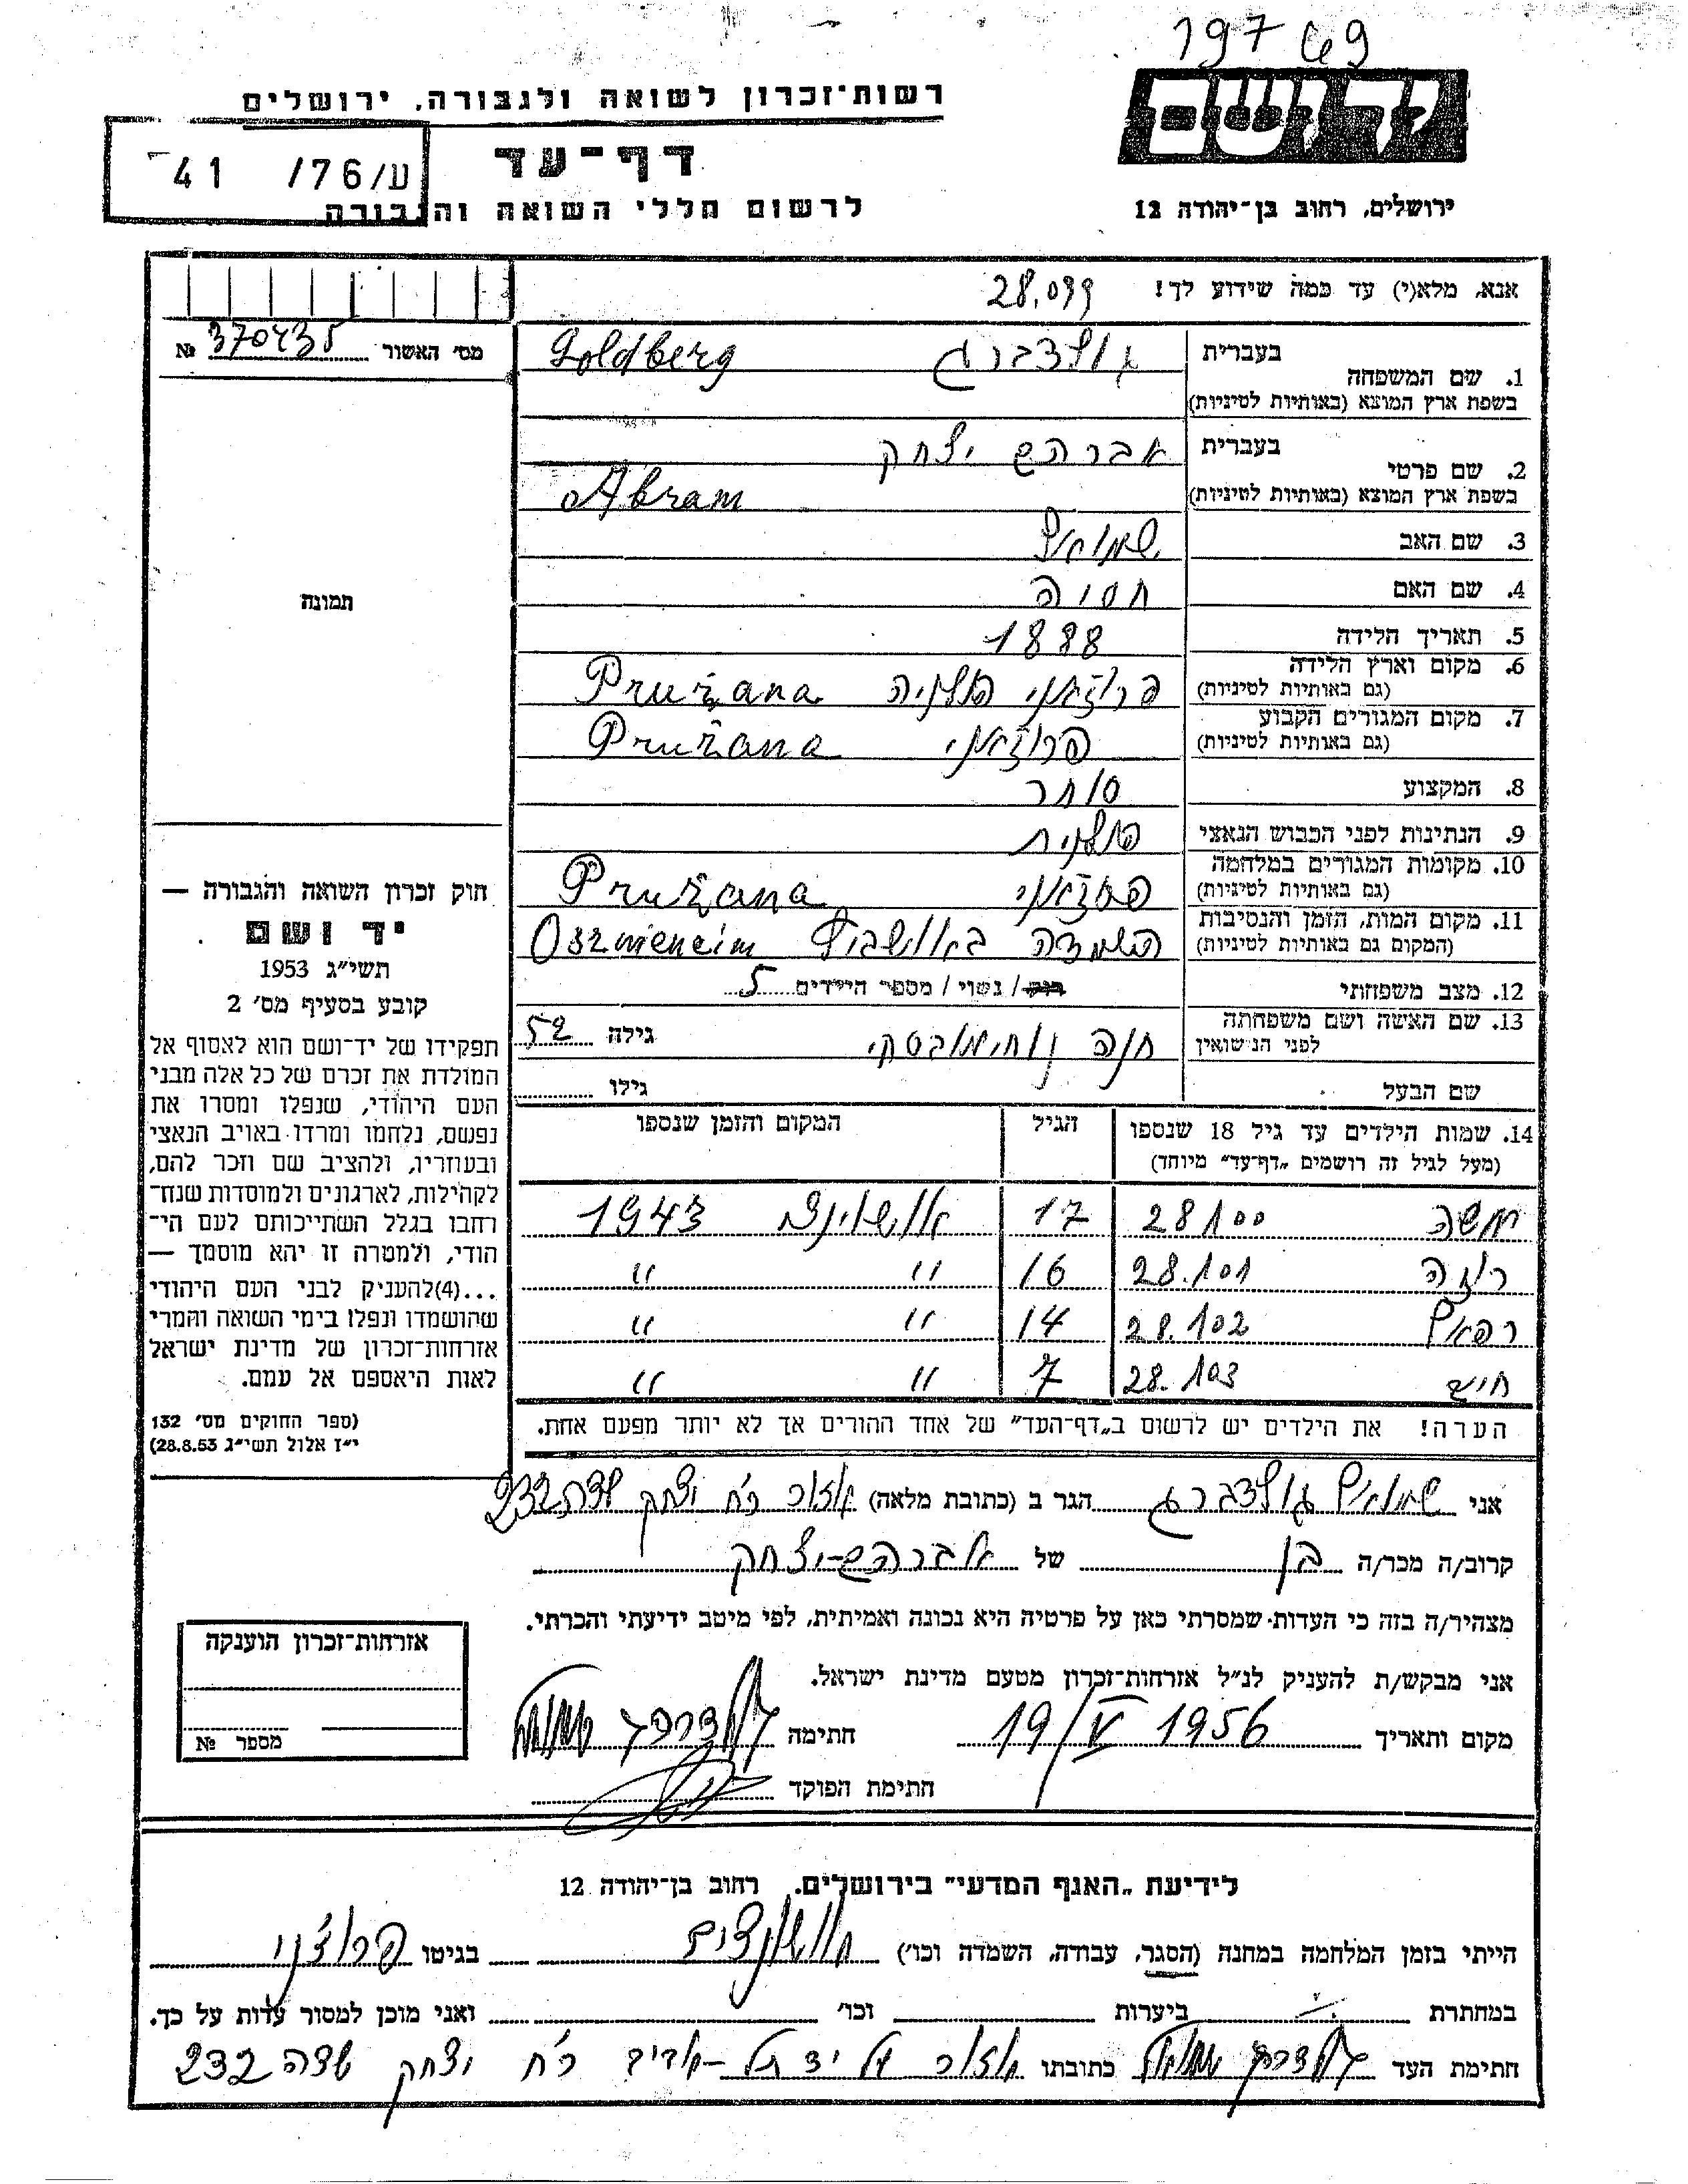 197 69
רשות־זכרון לשואה ולגבורה, ירושלים
יד ושם
דף־עד
ע/76/ 41
לרשום חללי השואה והגבורה
ירושלים, רחוב בן־יהודה 12
אנא, מלא(י) עד כמה שידוע לך! 28.099
מס׳ האשור 370435 №
בעברית גולדברג Goldberg
1. שם המשפחה
בשפת ארץ המוצא (באותיות לטיניות)
בעברית אברהם יצחק
2. שם פרטי
בשפת ארץ המוצא (באותיות לטיניות) Abram
3. שם האב שמואל
4. שם האם חסיה
5. תאריך הלידה 1888
6. מקום וארץ הלידה
(גם באותיות לטיניות) פרוז׳אני פולניה Prużana
7. מקום המגורים הקבוע
(גם באותיות לטיניות) פרוז׳אני Prużana
8. המקצוע סוחר
9. הנתינות לפני הכבוש הנאצי פולנית
10. מקומות המגורים במלחמה
(גם באותיות לטיניות) Prużana
11. מקום המות, הזמן והנסיבות
(המקום גם באותיות לטיניות) השמדה
12. מצב משפחתי רוק / נשוי / מספר הילדים 5
13. שם האשה ושם משפחתה
לפני הנישואין חנה גילה 52
שם הבעל גילו
14. שמות הילדים עד גיל 18 שנספו
(מעל לגיל זה רושמים „דף־עד״ מיוחד)
הגיל
המקום והזמן שנספו
משה 28100 17 1943
רוזה 28.101 16 " "
רפאל 28.102 14 " "
חיים 28.103 7 " "
הערה! את הילדים יש לרשום ב„דף־העד״ של אחד ההורים אך לא יותר מפעם אחת.
תמונה
חוק זכרון השואה והגבורה —
יד ושם
תשי״ג 1953
קובע בסעיף מס׳ 2
תפקידו של יד־ושם הוא לאסוף אל
המולדת את זכרם של כל אלה מבני
העם היהודי, שנפלו ומסרו את
נפשם, נלחמו ומרדו באויב הנאצי
ובעוזריו, ולהציב שם וזכר להם,
לקהילות, לארגונים ולמוסדות שנח־
רחבו בגלל השתייכותם לעם הי־
הודי, ולמטרה זו יהא מוסמך —
...(4)להעניק לבני העם היהודי
שהושמדו ונפלו בימי השואה והמרי
אזרחות־זכרון של מדינת ישראל
לאות היאספם אל עמם.
(ספר החוקים מס׳ 132
י״ז אלול תשי״ג 28.8.53)
אני שמואל גולדברג הגר ב (כתובת מלאה) אזור רח יצחק שדה 232
קרוב/ה מכר/ה בן של אברהם־יצחק
מצהיר/ה בזה כי העדות שמסרתי כאן על פרטיה היא נכונה ואמיתית, לפי מיטב ידיעתי והכרתי.
אני מבקש/ת להעניק לנ״ל אזרחות־זכרון מטעם מדינת ישראל.
מקום ותאריך 19/V 1956 חתימה גולדברג שמואל
חתימת הפוקד
אזרחות־זכרון הוענקה
מספר №
לידיעת „האגף המדעי״ בירושלים. רחוב בן־יהודה 12
הייתי בזמן המלחמה במחנה (הסגר, עבודה, השמדה וכו׳) בגיטו
במחתרת ביערות וכו׳ ואני מוכן למסור עדות על כך.
חתימת העד גולדברג שמואל כתובתו אזור על יד תל־אביב רח יצחק שדה 232